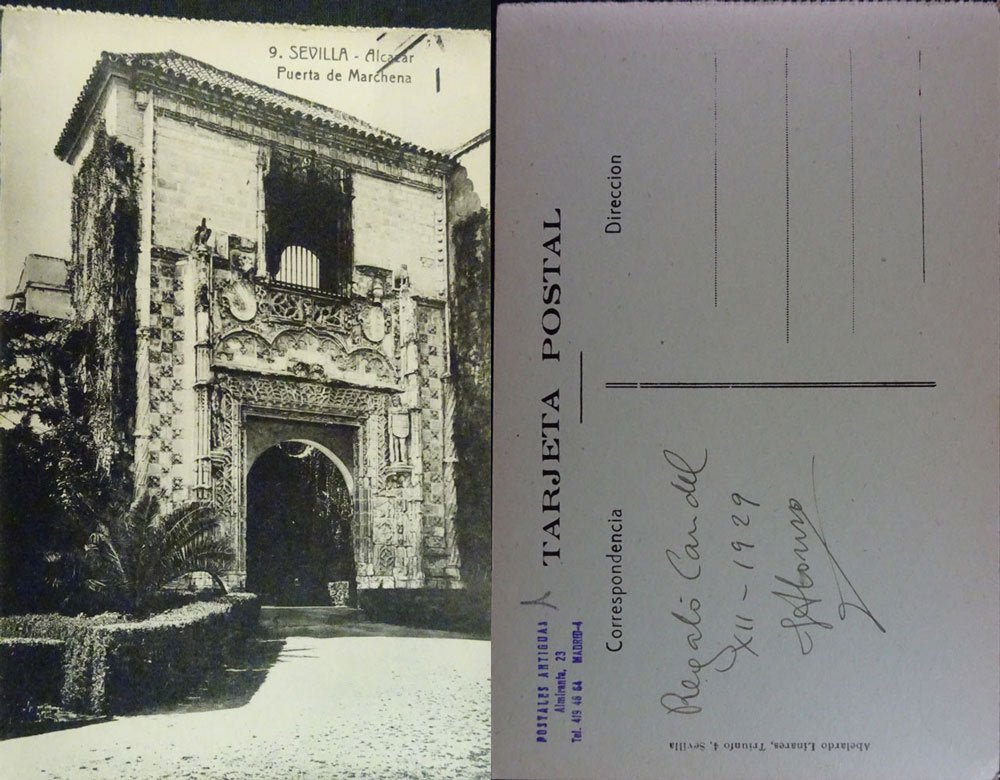 9. SEVILLA - Alcazar
Puerta de Marchena
POSTALES ANTIGUAS
Almirante, 23
Tel. 419 46 64 MADRID-4
TARJETA POSTAL
Correspondencia
Direccion
Regaló Candel
XII - 1929
Abelardo Linares, Triunfo 4, Sevilla